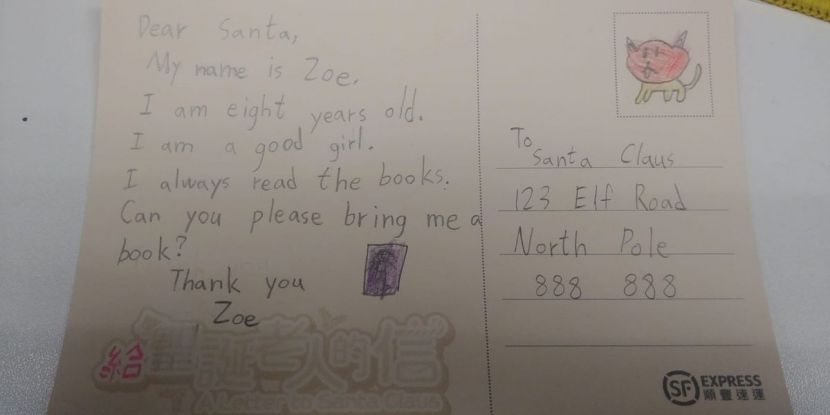 Dear Santa,
My name is Zoe.
I am eight years old.
I am a good girl.
I always read the books.
Can you please bring me a
book?
Thank you
Zoe
給聖誕老人的信
A Letter to Santa Claus
To
Santa Claus
123 Elf Road
North Pole
888 888
SF EXPRESS
順豐速運